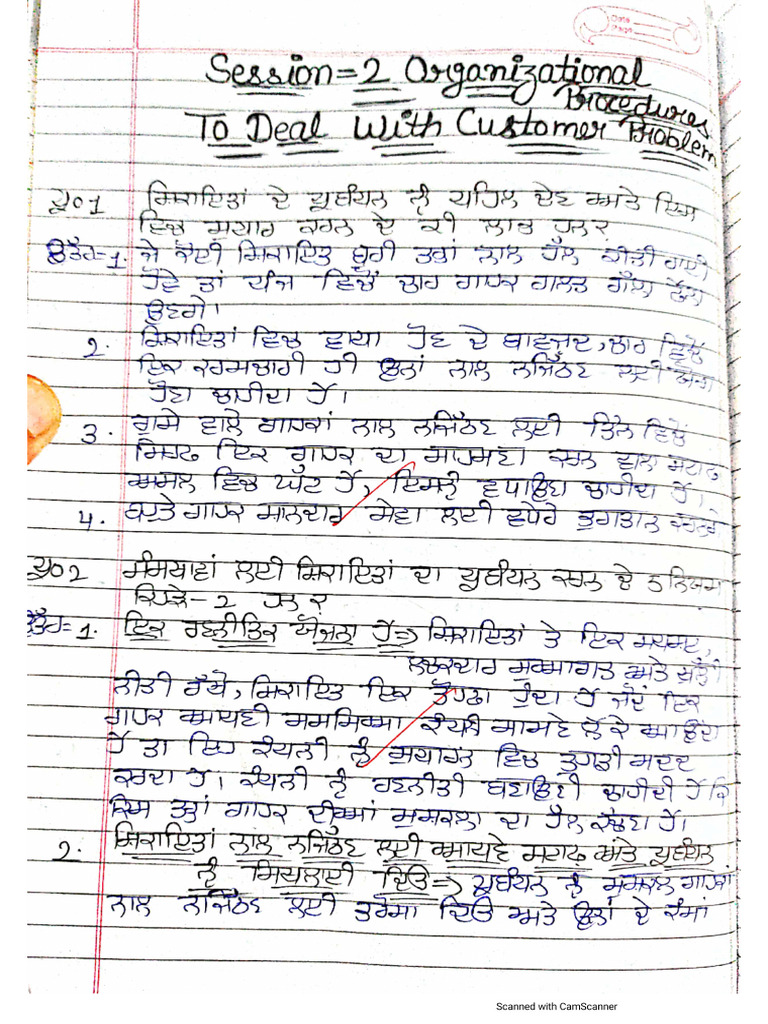 Date
Page
Session=2 Organizational
Procedures
To Deal With Customer Problem
ਪ੍ਰ01 ਸ਼ਿਕਾਇਤਾਂ ਦੇ ਪ੍ਰਬੰਧਨ ਨੂੰ ਪਹਿਲ ਦੇਣ ਅਤੇ ਇਸ
ਵਿਚ ਸੁਧਾਰ ਕਰਨ ਦੇ ਕੀ ਲਾਭ ਹਨ?
ਉੱਤਰ=1. ਜੇ ਕੋਈ ਸ਼ਿਕਾਇਤ ਬੁਰੀ ਤਰਾਂ ਨਾਲ ਹੱਲ ਕੀਤੀ ਗਈ
ਹੋਵੇ ਤਾਂ ਪੰਜ ਵਿਚੋਂ ਚਾਰ ਗਾਹਕ ਗਲਤ ਗੱਲ
ਉਣਗੇ।
2. ਸ਼ਿਕਾਇਤਾਂ ਵਿਚ ਵਾਧਾ ਹੋਣ ਦੇ ਬਾਵਜੂਦ, ਚਾਰ ਵਿਚੋਂ
ਇਕ ਕਰਮਚਾਰੀ ਹੀ ਉਨਾਂ ਨਾਲ ਨਜਿੱਠਣ ਲਈ
ਹੋਣਾ ਚਾਹੀਦਾ ਹੈ।
3. ਗੁਸੇ ਵਾਲੇ ਗਾਹਕਾਂ ਨਾਲ ਨਜਿੱਠਣ ਲਈ ਤਿੰਨ ਵਿਚੋਂ
ਸਿਰਫ ਇਕ ਗਾਹਕ ਦਾ ਸਾਹਮਣਾ ਕਰਨ ਵਾਲ ਸਟਾਫ
ਅਸਲ ਵਿਚ ਘੱਟ ਹੈ, ਇਸਨੂੰ ਵਧਾਉਣਾ ਚਾਹੀਦਾ ਹੈ।
4. ਬਹੁਤੇ ਗਾਹਕ ਸ਼ਾਨਦਾਰ ਸੇਵਾ ਲਈ ਵਧੇਰੇ ਭੁਗਤਾਨ ਕਰਨਗੇ
ਪ੍ਰ02 ਸੰਸਥਾਵਾਂ ਲਈ ਸ਼ਿਕਾਇਤਾਂ ਦਾ ਪ੍ਰਬੰਧਨ ਕਰਨ ਦੇ 5 ਨਿਯਮ
ਕਿਹੜੇ-2 ਹਨ?
ਉੱਤਰ=1. ਇਕ ਰਣਨੀਤਿਕ ਯੋਜਨਾ ਹੈ=> ਸ਼ਿਕਾਇਤਾਂ ਤੇ ਇਕ ਸਪਸ਼ਟ,
ਲਚਕਦਾਰ ਸੁਆਗਤ ਅਤੇ ਖੁੱਲੀ
ਨੀਤੀ ਰੱਖੋ, ਸ਼ਿਕਾਇਤ ਇਕ ਤੋਹਫਾ ਹੁੰਦਾ ਹੈ ਜਦੋਂ ਇਕ
ਗਾਹਕ ਆਪਣੀ ਸਮਸਿਆ ਕੰਪਨੀ ਸਾਮਣੇ ਲੈ ਕੇ ਆਉਂਦਾ
ਹੈ ਤਾ ਇਹ ਕੰਪਨੀ ਨੂੰ ਸੁਧਾਰਨ ਵਿਚ ਤੁਹਾਡੀ ਮਦਦ
ਕਰਦਾ ਹੈ। ਕੰਪਨੀ ਨੂੰ ਰਣਨੀਤੀ ਬਣਾਉਣੀ ਚਾਹੀਦੀ ਹੈ ਕਿ
ਕਿਸ ਤਰਾਂ ਗਾਹਕ ਦੀਆਂ ਮੁਸ਼ਕਲਾ ਦਾ ਹੱਲ ਕੱਢਣਾ ਹੈ।
2. ਸ਼ਿਕਾਇਤਾਂ ਨਾਲ ਨਜਿੱਠਣ ਲਈ ਆਪਣੇ ਸਟਾਫ ਅਤੇ ਪ੍ਰਬੰਧਨ
ਨੂੰ ਸਿਖਲਾਈ ਦਿਓ=> ਪ੍ਰਬੰਧਨ ਨੂੰ ਮੁਸ਼ਕਲ ਗਾਹਕਾਂ
ਨਾਲ ਨਜਿੱਠਣ ਲਈ ਭਰੋਸਾ ਦਿਓ ਅਤੇ ਉਨਾਂ ਦੇ ਕੰਮਾਂ
Scanned with CamScanner